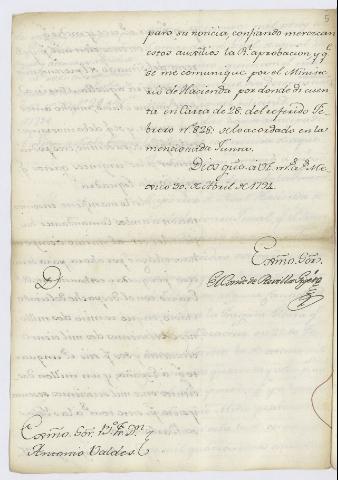 5
para su noticia, confiando merezcan
estos auxilios la Rl. aprobacion y qe.
se me comunique por el Ministe-
rio de Hacienda por donde di cuen-
ta en Carta de 28. del referido Fe-
brero nº 828. de lo acordado en la
mencionada Junta.
Dios gue. á V.E. ms. as. Me-
xico 30. de Abril de 1794.
Exmo. Sor.
El Conde de Revilla Gigedo
D.
Exmo. Sor. Bº. Fr. Dn.
Antonio Valdes.